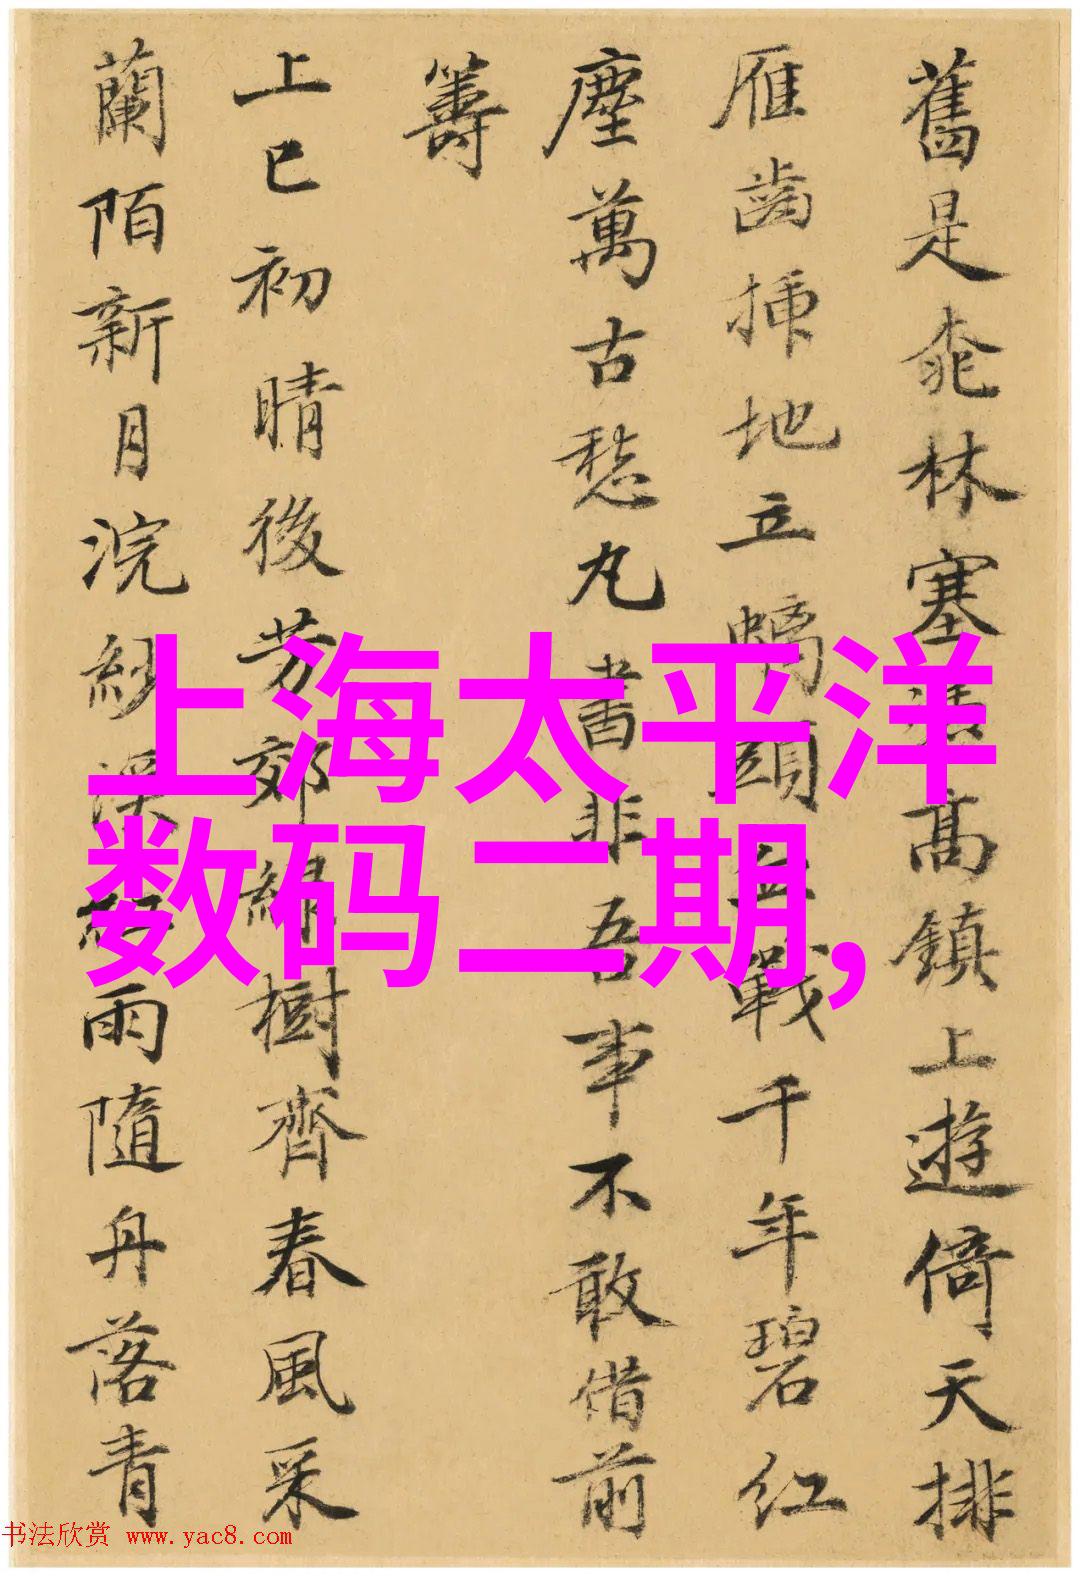 舊是桃林塞高鎮上遊倚天排
雁齒插地立螭頭血戰千年碧紅
塵萬古愁丸書非吾事不敢借前
籌
上巳初晴後芳郊綠樹齊春風采
蘭陌新月浣紗溪紅雨隨舟落青
上海太平洋
数码二期,
书法欣赏 www.yac8.com